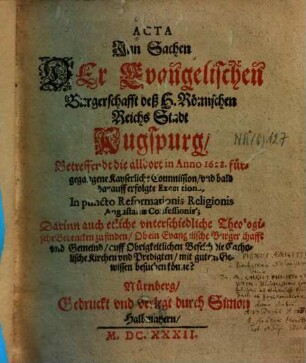 ACTA
In Sachen
Der Evangelischen
Burgerschafft deß H. Römischen
Reichs Stadt
Augspurg/
Betreffendt die alldort in Anno 1628. für-
gegangene Kayserliche Commission/ vnd bald
darauff erfolgte Execution,
In puncto Reformationis Religionis
Augustanæ Confessionis;
Darinn auch etliche vnterschiedliche Theologi-
sche Bedencken zu finden/ Ob ein Evangelische Burgerschafft
vnd Gemeind/ auff Obrigkeitlichen Befelch die Catho-
lische Kirchen vnd Predigten/ mit gutem Ge-
wissen besuchen könne?
Nürnberg/
Gedruckt vnd verlegt durch Simon
Halbmayern/
M. DC. XXXII.